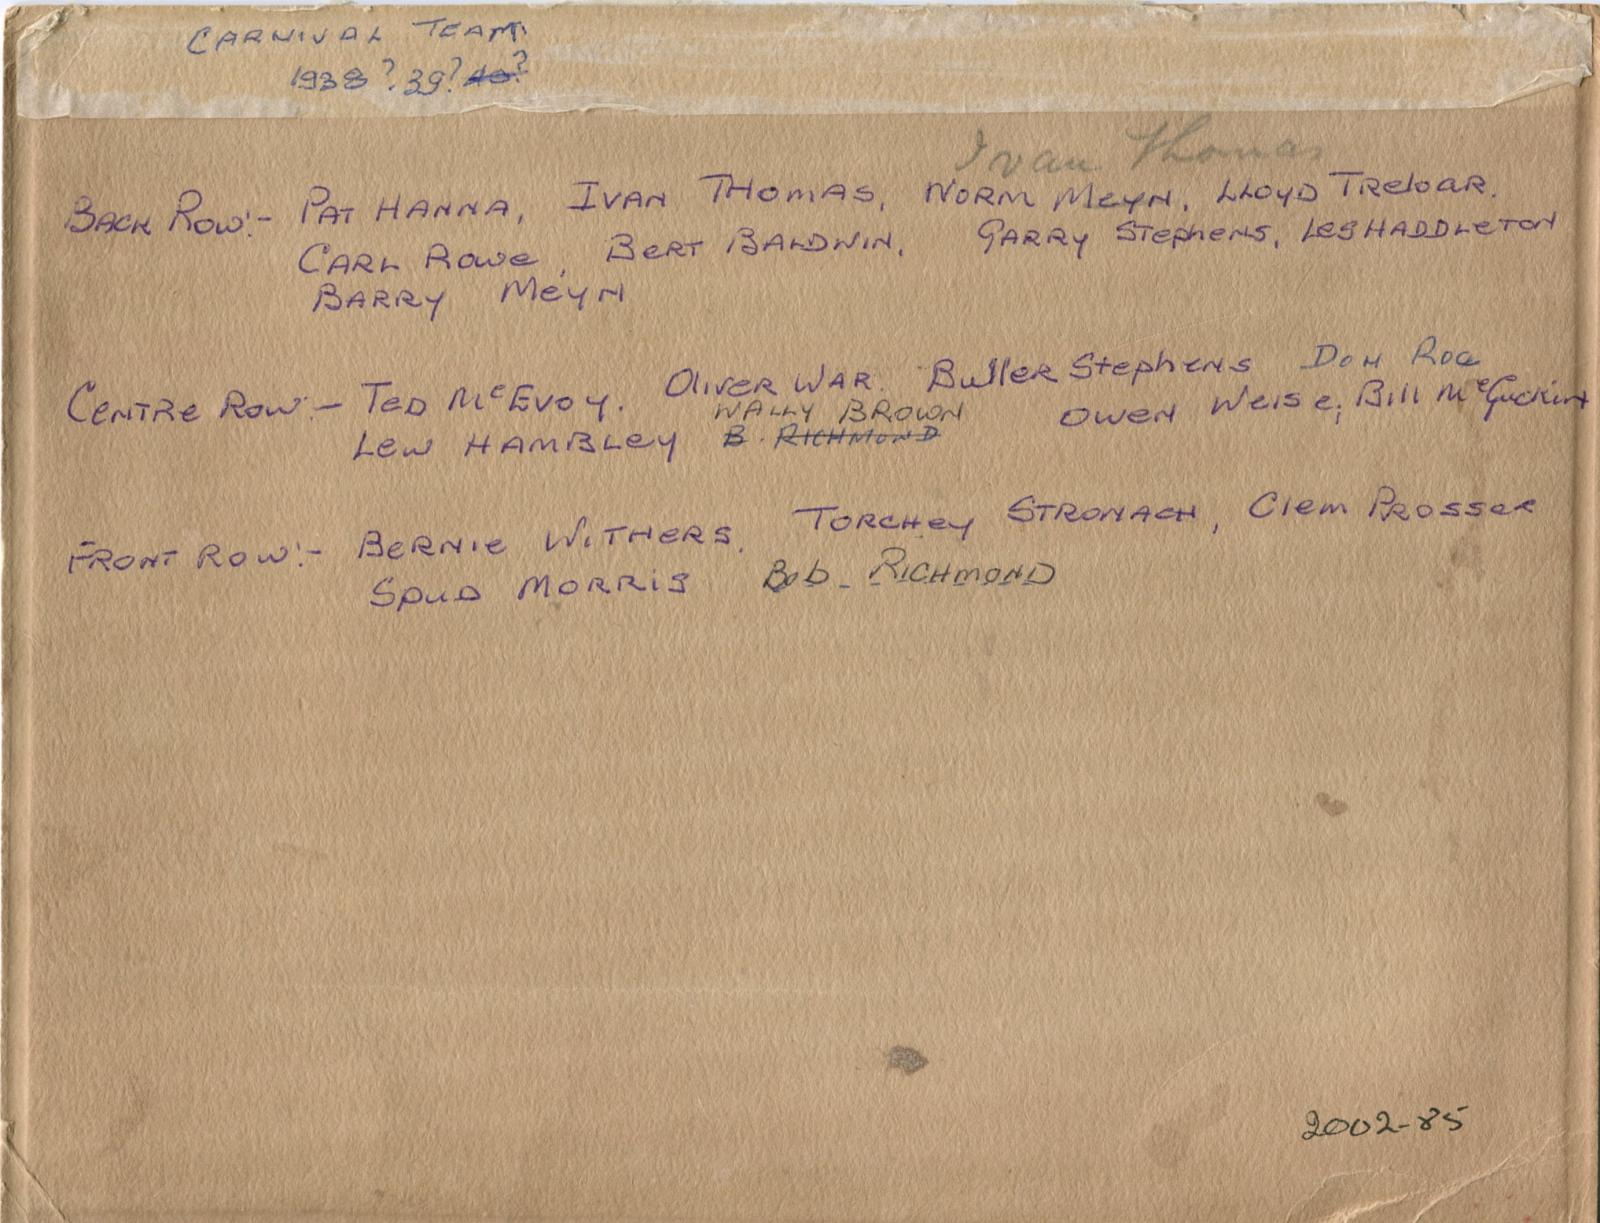 CARNIVAL TEAM.
1938? 39? 40?
Ivan Thomas
BACK ROW:- PAT HANNA, IVAN THOMAS, NORM MEYN, LLOYD TRELOAR.
CARL ROWE, BERT BALDWIN, GARRY STEPHENS, LES HADDLETON
BARRY MEYN
CENTRE ROW:- TED McEVOY. OLIVER WAR. BULLER STEPHENS DON ROE
WALLY BROWN OWEN WEISE; BILL McGUCKIN
LEW HAMBLEY B. RICHMOND
FRONT ROW:- BERNIE WITHERS, TORCHEY STRONACH, CLEM PROSSER
SPUD MORRIS Bob RICHMOND
2002-85